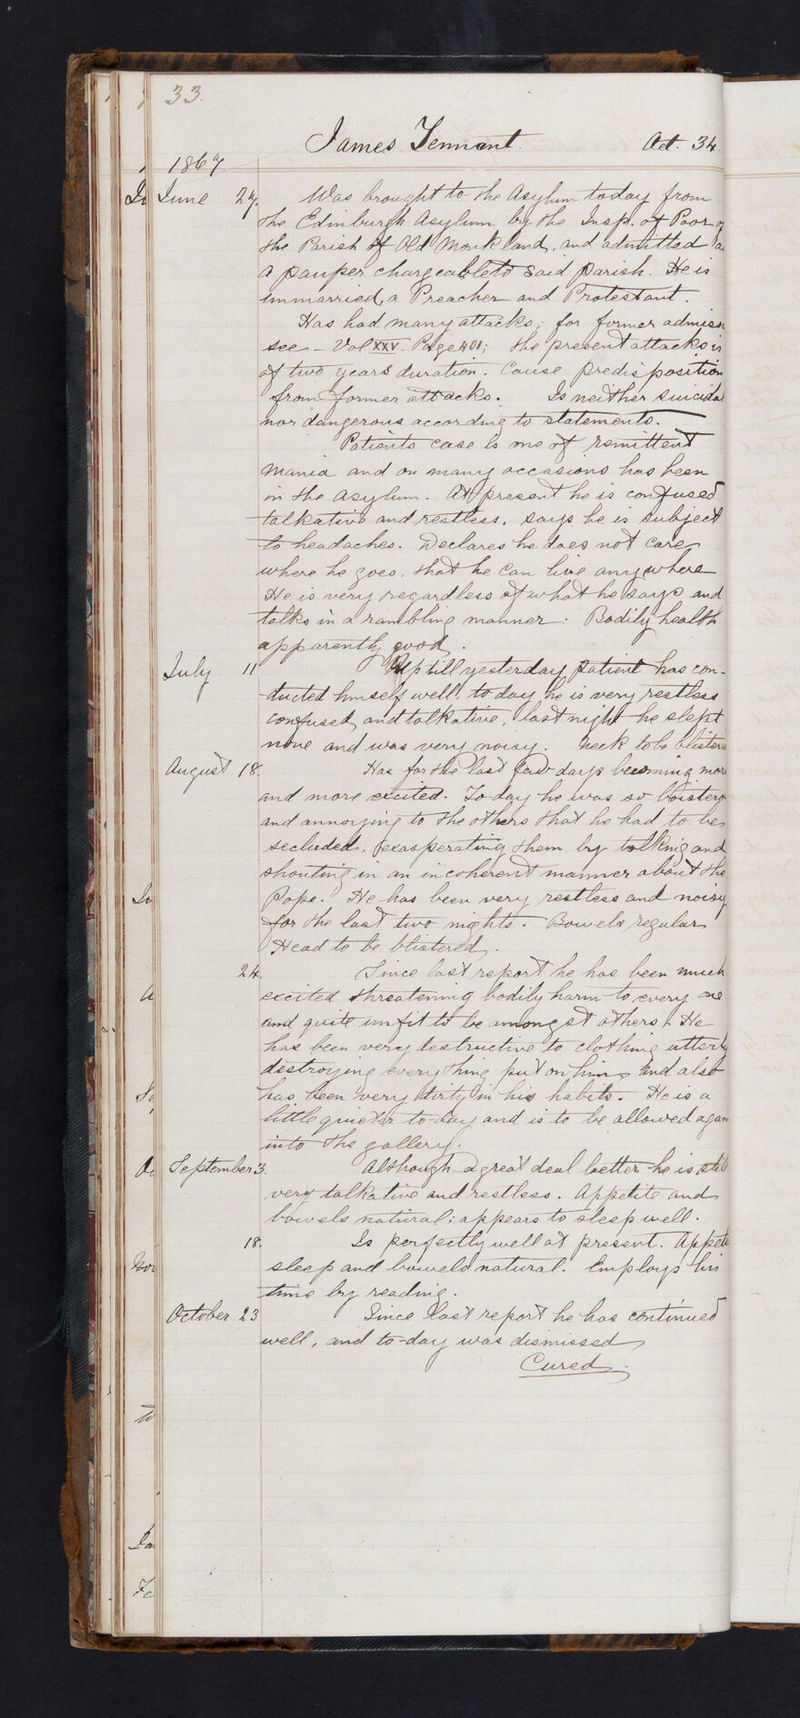 33.
James Tennant. Aet. 34
1867
June 27. Was brought to the Asylum today from
the Edinburgh Asylum by the Insp. of Poor of
the Parish of Old Monkland, and admitted a
a pauper chargeable to said parish. He is
unmarried, a Preacher and Protestant.
Has had many attacks; for former admiss
see – Vol XXV. Page 401; the present attack is
of two years duration. Cause predisposition
from former attacks. Is neither suicidal
nor dangerous according to statements.
Patients case is one of remittent
mania and on many occasions has been
in the asylum. At present he is confused
talkative and restless, says he is subject
to headaches. Declares he does not care
where he goes, that he can live anywhere
He is very regardless of what he says and
talks in a rambling manner: Bodily health
apparently good.
July 11 Up till yesterday patient has con-
ducted himself well, to day he is very restless
confused, and talkative, last night he slept
none and was very noisy. Neck to be blistered
August 18. Has for the last few days becoming more
and more excited. To day he was so boisterous
and annoying to the others that he had to be
secluded, exasperating them by talking and
shouting in an incoherent manner about the
Pope. He has been very restless and noisy
for the last two nights. Bowels regular
Head to be blistered.
24. Since last report he has been much
excited threatening bodily harm to every one
and quite unfit to be amongst others. He
has been very destructive to clothing utterly
destroying everything put on him and also
has been very dirty in his habits. He is a
little quieter to-day and is to be allowed again
into the gallery.
September 3. Although a great deal better he is still
very talkative and restless. Appetite and
bowels natural; appears to sleep well.
18. Is perfectly well at present. Appetite
sleep and bowels natural. Employs his
time by reading.
October 23 Since last report he has continued
well, and to-day was dismissed
Cured.